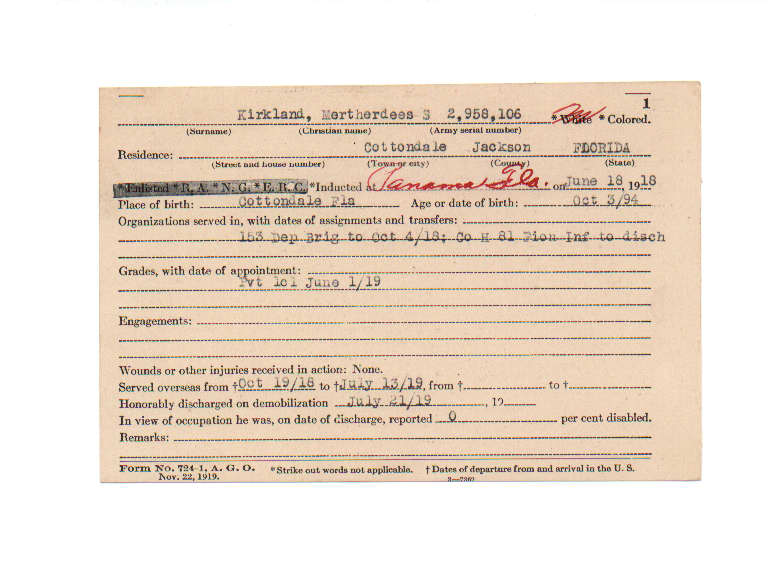 1
Kirkland, Mertherdees S 2,958,106 *White *Colored.
(Surname) (Christian name) (Army serial number)
Residence: Cottondale Jackson FLORIDA
(Street and house number) (Town or city) (County) (State)
*Enlisted *R. A. *N. G. *E. R. C. *Inducted at Panama Fla. on June 18, 1918
Place of birth: Cottondale Fla Age or date of birth: Oct 3/94
Organizations served in, with dates of assignments and transfers:
153 Dep Brig to Oct 4/18; Co H 81 Pion Inf to disch
Grades, with date of appointment:
Pvt 1cl June 1/19
Engagements:
Wounds or other injuries received in action: None.
Served overseas from †Oct 19/18 to †July 13/19, from † to †
Honorably discharged on demobilization July 21/19, 19
In view of occupation he was, on date of discharge, reported 0 per cent disabled.
Remarks:
Form No. 724-1, A. G. O. *Strike out words not applicable. † Dates of departure from and arrival in the U. S.
Nov. 22, 1919.